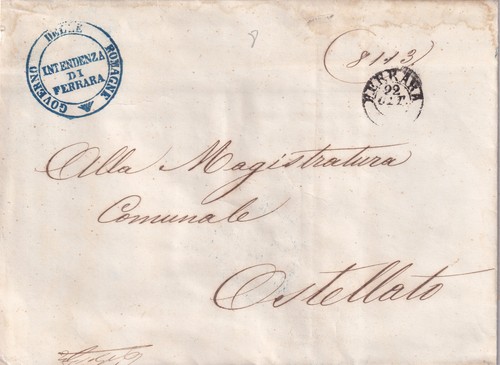 GOVERNO DELLE ROMAGNE
INTENDENZA
DI
FERRARA
(8113)
FERRARA
22
OTT.
Alla Magistratura
Comunale
Ostellato